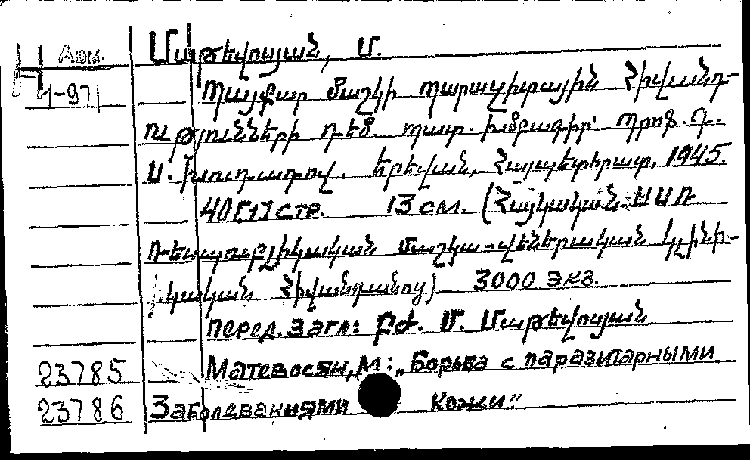 Арм. Մաթևոսյան, Մ.
4-971 Պայքար մաշկի պարազիտային հիվանդ-
ությունների դեմ պատ. խմբագիր՝ պրոֆ. Գ.
Ա. Երևան, Հայպետհրատ, 1945.
40[1] стр. 13 см. (Հայկական ՍՍՌ
Ռեսպուբլիկական մաշկա-վեներական կլինի-
կական հիվանդանոց) 3000 экз.
перед. загл: Բժ. Մ. Մաթևոսյան
23785 Матевосян, М: „Борьба с паразитарными
23786 Заболеваниями кожи"